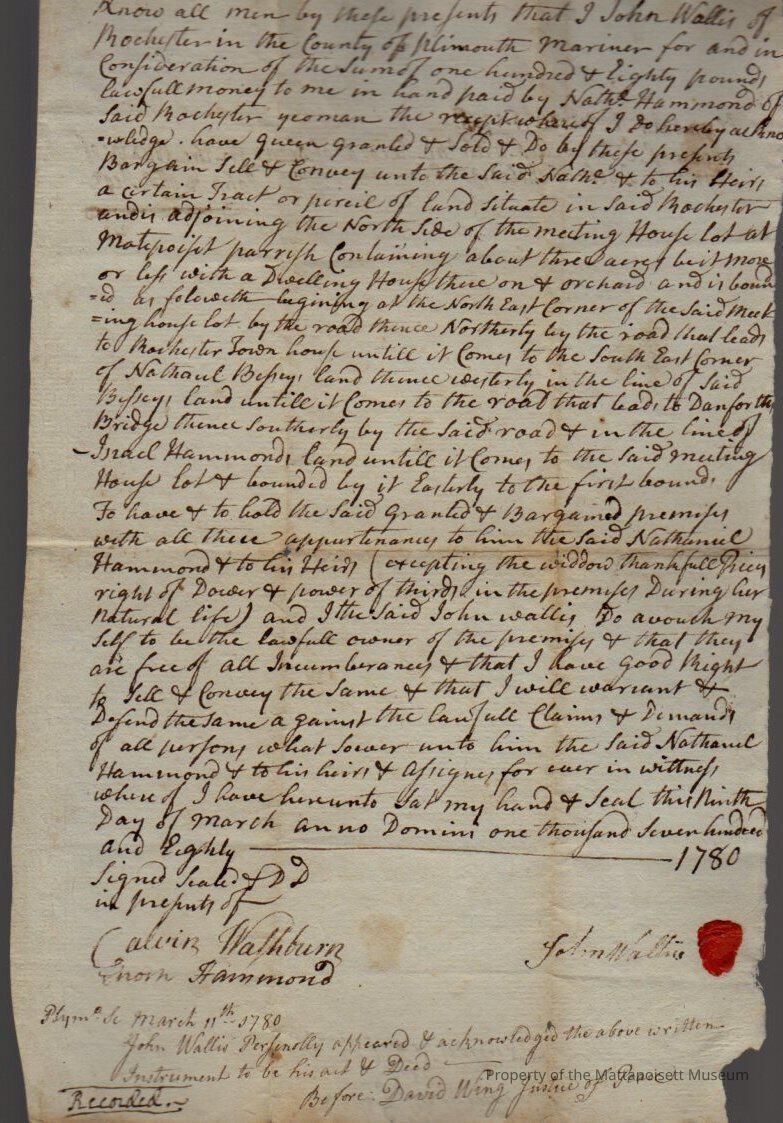 Know all men by these presents that I John Wallis of
Rochester in the County of Plimouth Mariner for and in
Consideration of the Sum of one hundred & Eighty pounds
lawfull money to me in hand paid by Nathl. Hammond of
Said Rochester yeoman the recept whereof I Do hereby ackno
=wledge. have given granted & Sold & Do by these presents
Bargain Sell & Convey unto the Said Nathl. & to his Heirs
a certain Tract or percil of land situate in Said Rochester
and is adjoining the North Side of the meeting House lot at
Matepoiset parrish Containing about three acres be it more
or less with a Dwelling House there on & orchard and is bound
=ed as foloweth begining at the North East Corner of the Said Meet
=ing house lot by the road thence Northerly by the road that leads
to Rochester Town house untill it Comes to the South East Corner
of Nathaniel Besseys land thence westerly in the line of Said
Besseys land untill it Comes to the road that leads to Danforths
Bridge thence Southerly by the Said road & in the line of
Israel Hammonds land untill it Comes to the Said meeting
House lot & bounded by it Easterly to the first bounds
To have & to hold the Said Granted & Bargained premises
with all there appurtenances to him the Said Nathaniel
Hammond & to his Heirs (excepting the widdow thankfull
right of Dower & power of thirds in the premises During her
Natural life) and I the Said John Wallis Do avouch my
Self to be the lawfull owner of the premises & that they
are free of all Incumberances & that I have Good Right
to Sell & Convey the Same & that I will warrant &
Defend the same against the lawfull Claims & Demands
of all persons what soever unto him the Said Nathaniel
Hammond & to his heirs & Assignes for ever in wittness
where of I have hereunto Sat my hand & Seal this Ninth
Day of March anno Domini one thousand Seven hundred
and Eighty 1780
Signed Sealed & DD
in presents of
Calvin Washburn
John Wallis
Enoch Hammond
Plymo. Sc March 11th 1780
John Wallis Personolly appeared & acknowledged the above written
Instrument to be his act & Deed
Property of the Mattapoisett Museum
Before: David Wing Justice of Peace
Recorded.